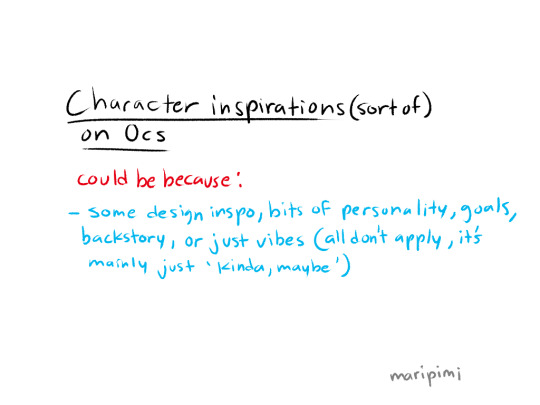 Character inspirations (sort of)
on Ocs
could be because:
- some design inspo, bits of personality, goals,
backstory, or just vibes (all don't apply, it's
mainly just 'kinda, maybe')
maripimi